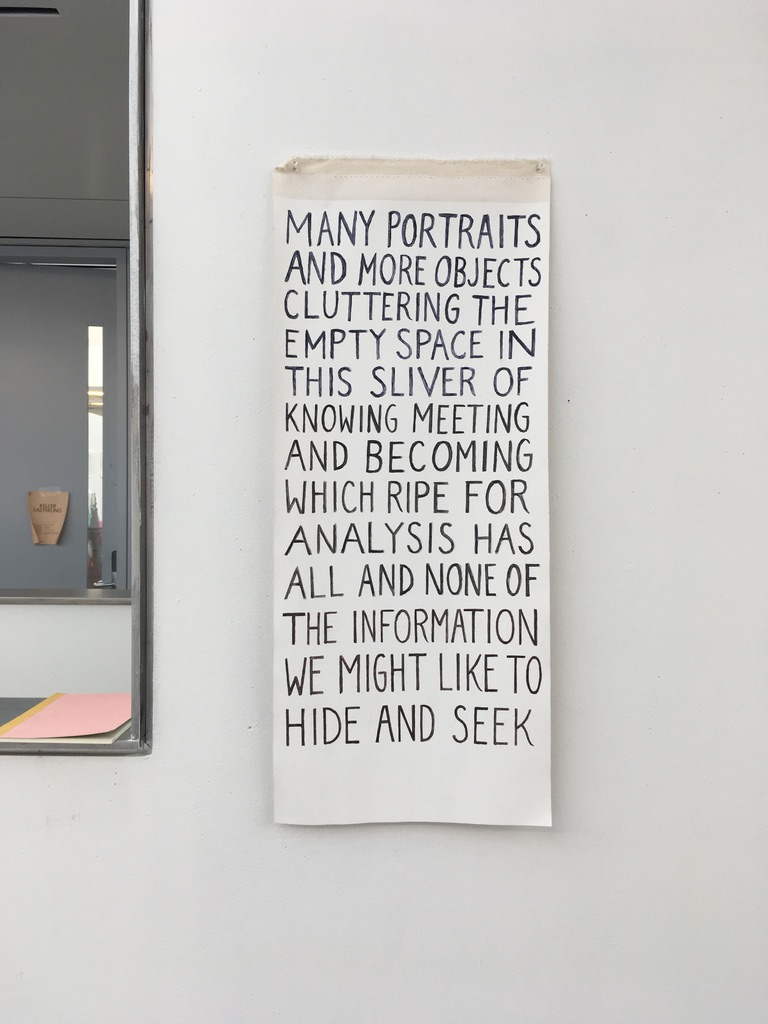 MANY PORTRAITS
AND MORE OBJECTS
CLUTTERING THE
EMPTY SPACE IN
THIS SLIVER OF
KNOWING MEETING
AND BECOMING
WHICH RIPE FOR
ANALYSIS HAS
ALL AND NONE OF
THE INFORMATION
WE MIGHT LIKE TO
HIDE AND SEEK
KELLER
EASTERLING